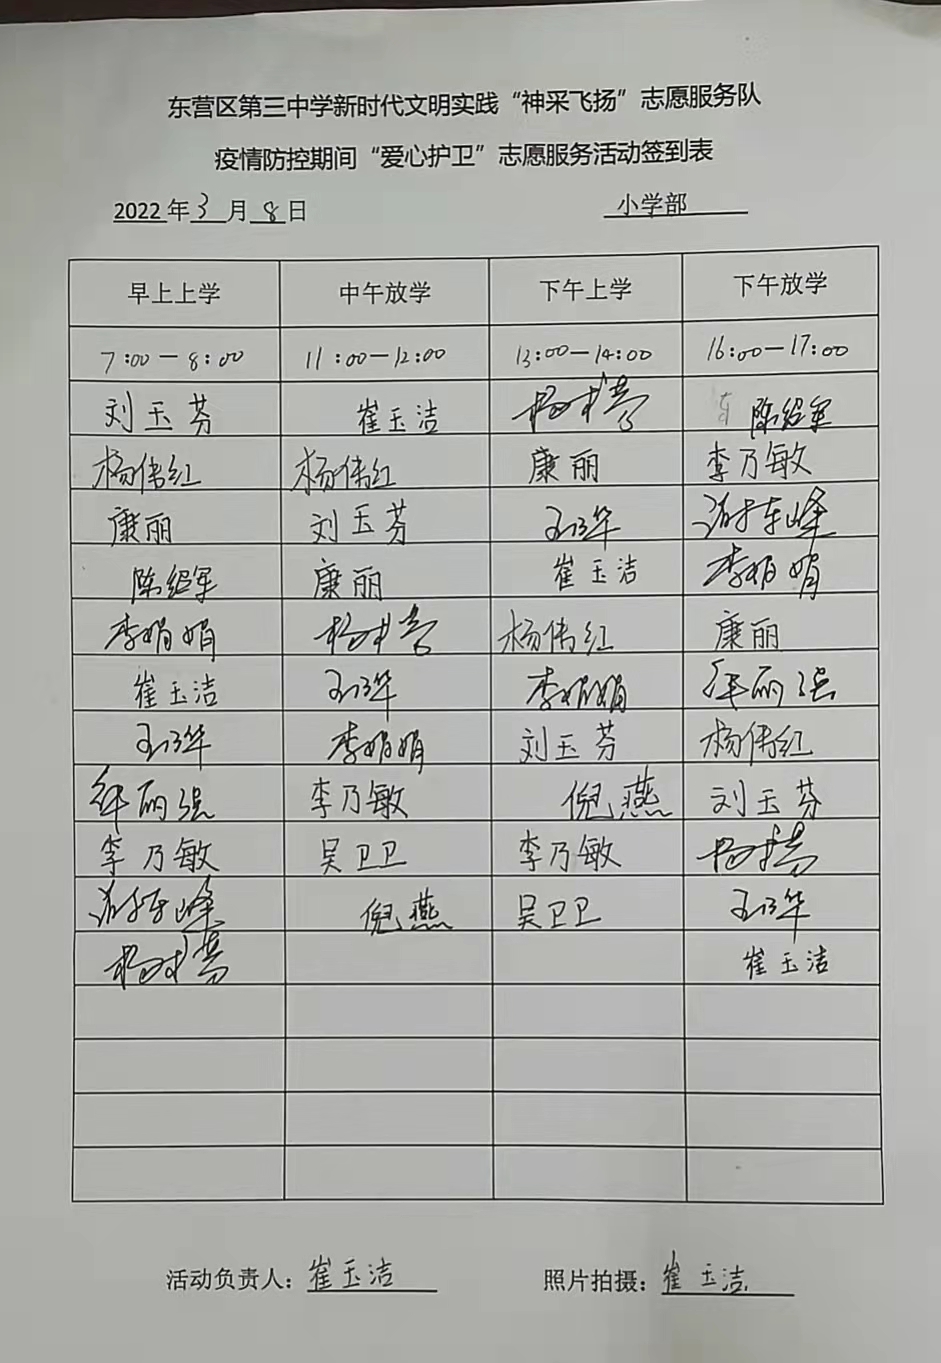 东营区第三中学新时代文明实践“神采飞扬”志愿服务队
疫情防控期间“爱心护卫”志愿服务活动签到表
2022年3月8日 小学部
早上上学 中午放学 下午上学 下午放学
7:00-8:00 11:00-12:00 13:00-14:00 16:00-17:00
刘玉芬 崔玉洁 陈绍军
杨伟红 杨伟红 康丽 李乃敏
康丽 刘玉芬
陈绍军 康丽 崔玉洁 李娟娟
李娟娟 杨伟红 康丽
崔玉洁 李娟娟
李娟娟 刘玉芬 杨伟红
李乃敏 倪燕 刘玉芬
李乃敏 吴卫卫 李乃敏
倪燕 吴卫卫
崔玉洁
活动负责人：崔玉洁 照片拍摄：崔玉洁